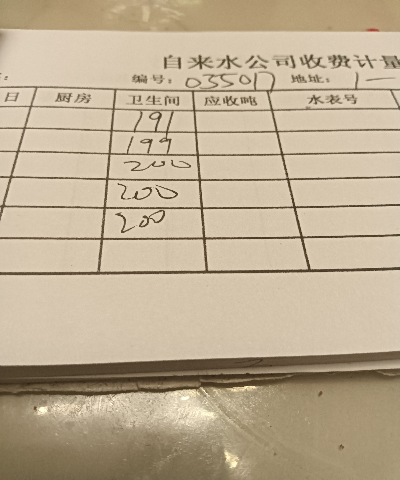 自来水公司收费计量
编号：035017 地址：1一
日 厨房 卫生间 应收吨 水表号
191
199
200
200
200